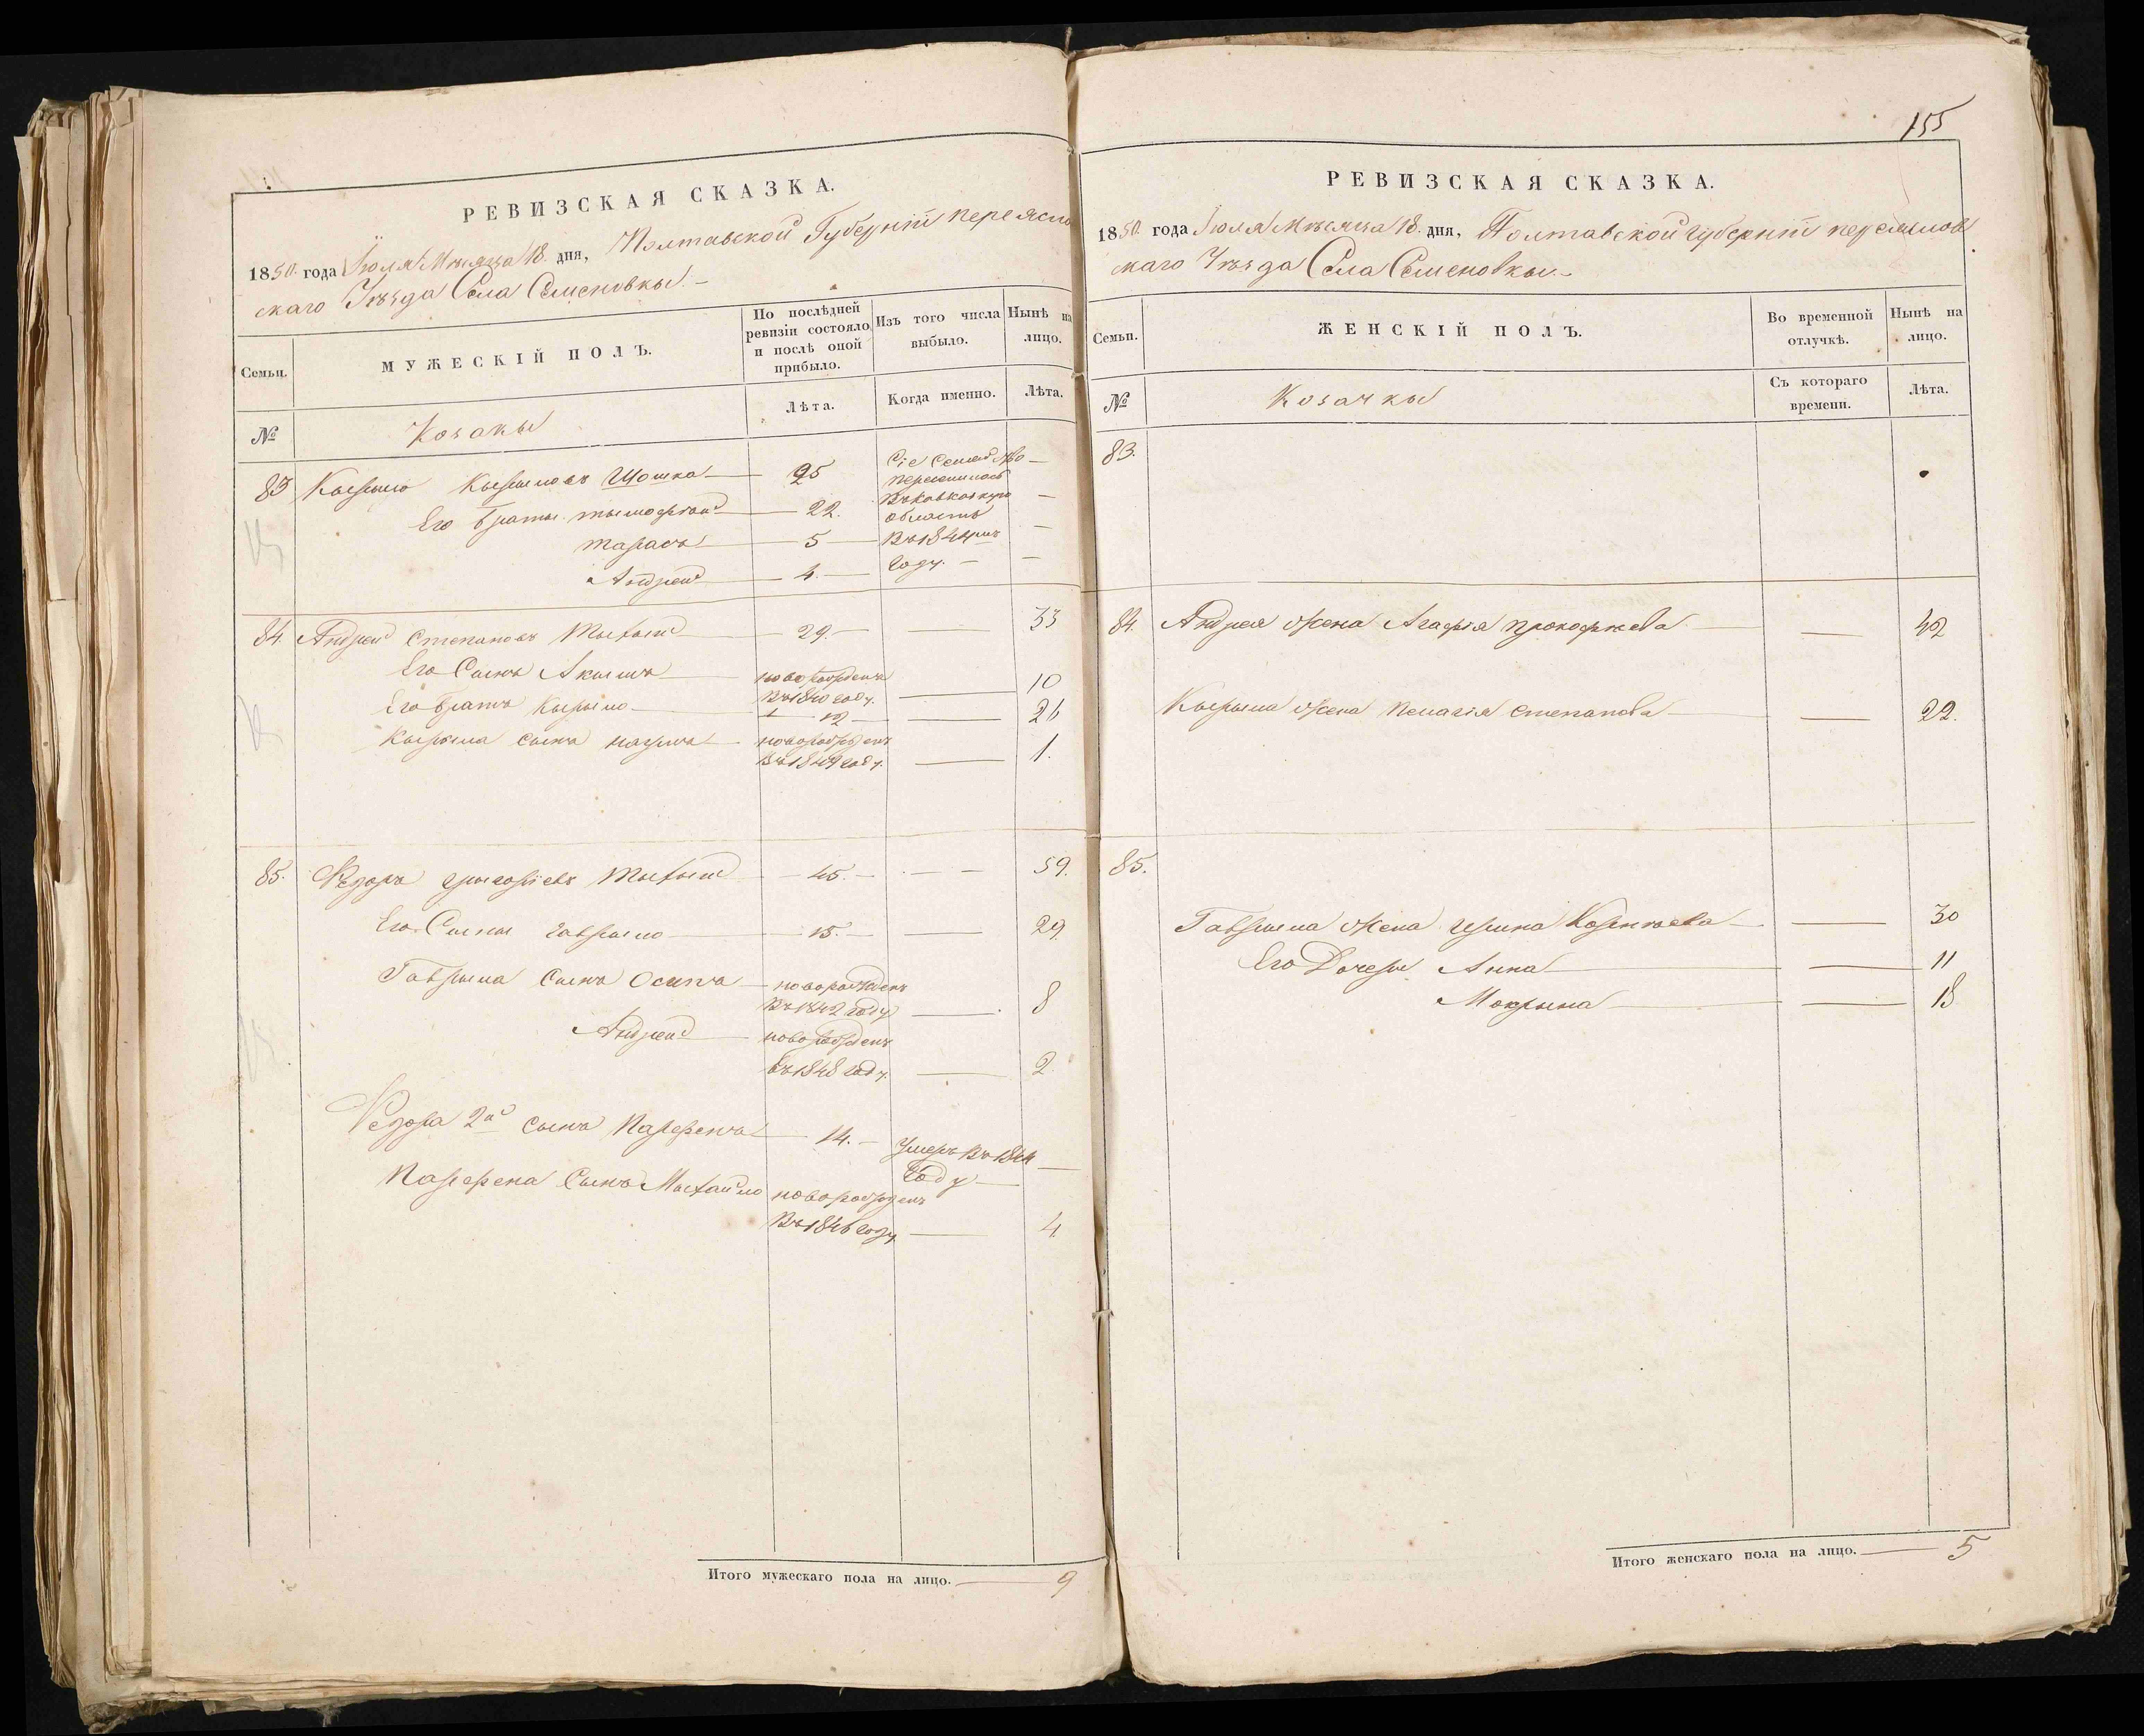 РЕВИЗСКАЯ СКАЗКА.
1850. года Іюля Мѣсяца 18. дня, Полтавской Губерніи переясло
скаго Уѣзда Села Семеновкы. -
Семьи.
МУЖЕСКІЙ ПОЛЪ.
По послѣдней ревизіи состояло и послѣ оной прибыло.
Изъ того числа выбыло.
Нынѣ на лицо.
№
Козакы
Лѣта.
Когда именно.
Лѣта.
83 Кырыло Кырыловъ Шошка 25 Сіе Семейство
переселилось
Его браты тымофѣй 22. Въ Кавказкую
область
тарасъ 5 Въ 1844мъ
Андрей 4. Году. -
84 Андрей Степановъ Мыхый 29. 33
Его Сынъ Акымъ новорожденъ
Въ 1840 году. 10
Его братъ Кырыло 12 26
Кырыла сынъ новорожденъ
Въ 1849 году. 1.
85. Ѳедоръ грыгоріевъ Мыхый 45. 59.
Его Сыны гаврыло 15. 29.
Гаврыла Сынъ Осипъ новорожденъ
Въ 1842 году 8
Андрей новорожденъ
Въ 1848 году. 2.
Ѳедора 2й сынъ Парфенъ 14. Умеръ Въ 1844
Году
Парфена Сынъ Мыхайло новорожденъ
Въ 1846 году 4
Итого мужескаго пола на лицо. 9
155
РЕВИЗСКАЯ СКАЗКА.
1850. года Іюля Мѣсяца 18. дня, Полтавской губерніи переяслов
скаго Уѣзда Села Семеновкы.
Семьи.
ЖЕНСКІЙ ПОЛЪ.
Во временной отлучкѣ.
Нынѣ на лицо.
№
Козачкы
Съ котораго времени.
Лѣта.
83.
84. Андрея Жена Агафія прокофьева 42
Кырыла Жена Пелагія Степанова 22.
85.
Гаврыла Жена Ирина Корнѣева 30
Его Дочеры Анна 11
Мокрына 18
Итого женскаго пола на лицо. 5